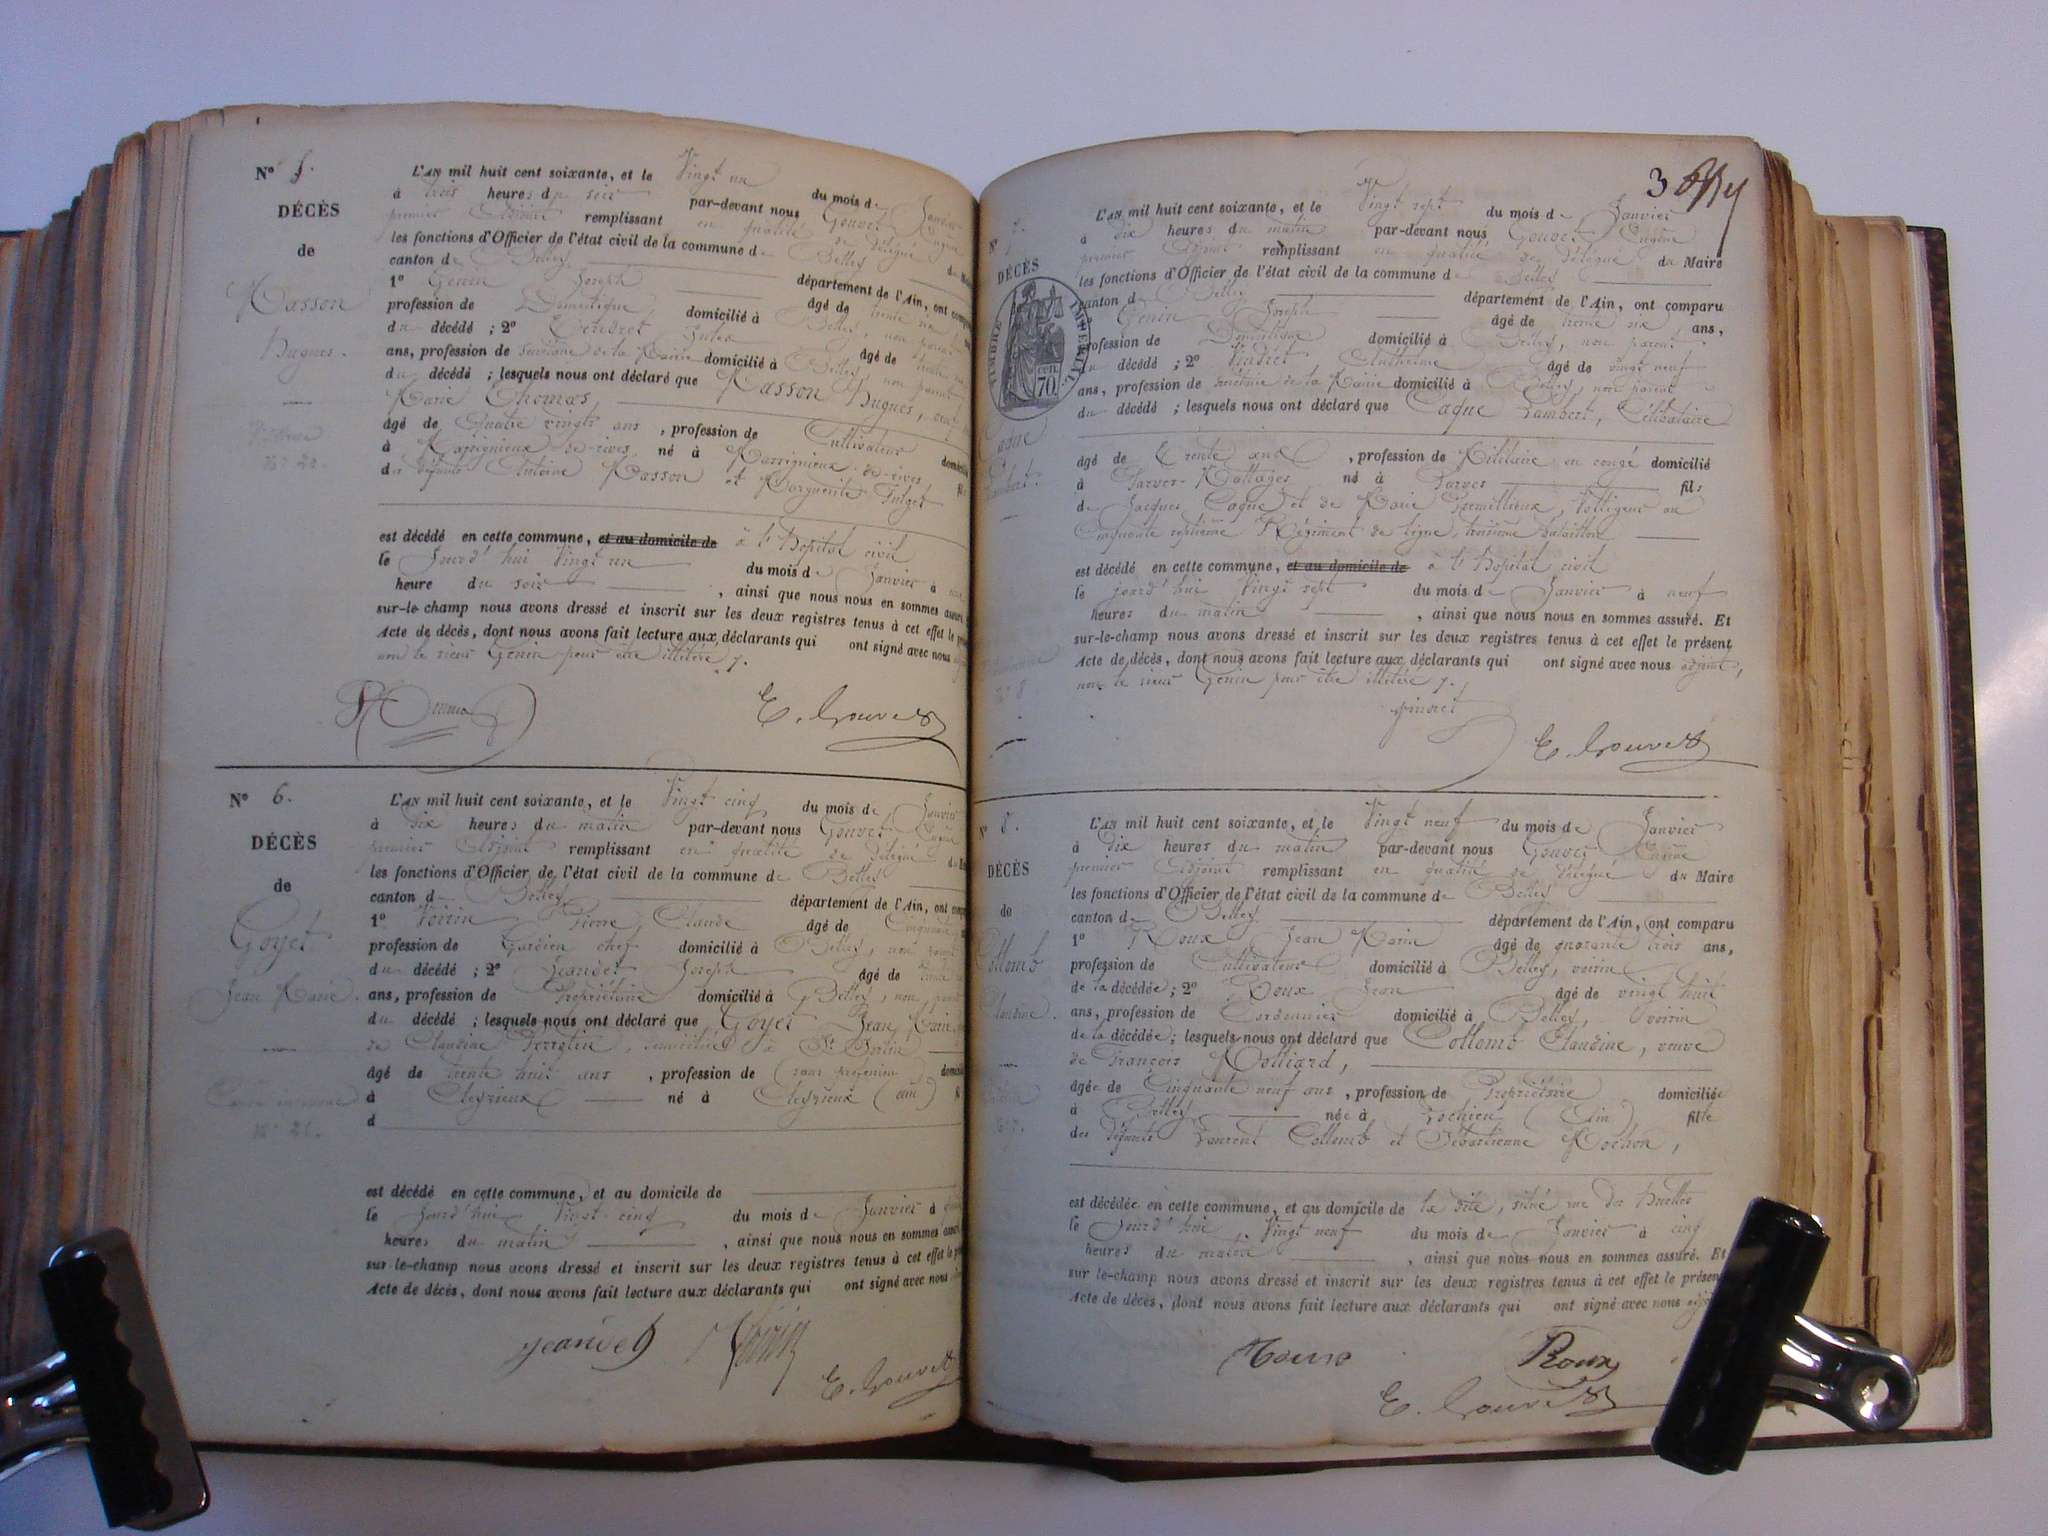 N° 5.
DÉCÈS
de
Masson
Hugues.
L'AN mil huit cent soixante, et le Vingt un du mois de Janvier
à trois heures du soir par-devant nous Gouvet Eugène
premier Adjoint remplissant en qualité de délégué du Maire
les fonctions d'Officier de l'état civil de la commune de Belley
canton de Belley département de l'Ain, ont comparu
1° Genin Joseph âgé de trente six
profession de Domestique, domicilié à Belley, non parent
du décédé ; 2° Jules âgé de
ans, profession de secrétaire de la Mairie domicilié à Belley, non parent
du décédé ; lesquels nous ont déclaré que Masson Hugues, veuf
Marie Thomas,
âgé de Quatre vingts ans , profession de Cultivateur domicilié
à Massignieux-de-rives né à Massignieux-de-rives fils
des défunts Antoine Masson et Marguerite
est décédé en cette commune, et au domicile de à l'Hopital civil
le Jourd'hui Vingt un du mois de Janvier à
heure du soir , ainsi que nous nous en sommes assuré
sur-le-champ nous avons dressé et inscrit sur les deux registres tenus à cet effet le
Acte de décès, dont nous avons fait lecture aux déclarants qui ont signé avec nous
non le sieur Genin pour être illitéré
E. Gouvet
N° 6.
DÉCÈS
de
Goyet
Jean Marie.
N° 21.
L'AN mil huit cent soixante, et le Vingt cinq du mois de Janvier
à dix heures du matin par-devant nous Gouvet Eugène
premier Adjoint remplissant en qualité de délégué du
les fonctions d'Officier de l'état civil de la commune de Belley
canton de Belley département de l'Ain, ont
1° Voirin Pierre Claude âgé de Cinquante
profession de Gardien chef domicilié à Belley, non parent
du décédé ; 2° Jeandet Joseph âgé de
ans, profession de Propriétaire domicilié à Belley, non parent
du décédé ; lesquels nous ont déclaré que Goyet Jean Marie
de Claudine domiciliée à St
âgé de trente huit ans , profession de (sans profession) domicilié
à Cleyzieux né à Cleyzieux (ain)
d
est décédé en cette commune, et au domicile de
le Jourd'hui Vingt cinq du mois de Janvier à
heures du matin , ainsi que nous nous en sommes assuré
sur le-champ nous avons dressé et inscrit sur les deux registres tenus à cet effet le
Acte de décès, dont nous avons fait lecture aux déclarants qui ont signé avec nous
Jeandet Voirin
E. Gouvet
3
N°
DÉCÈS
TIMBRE IMPÉRIAL
cen. 70.
Caque
Lambert.
L'AN mil huit cent soixante, et le Vingt sept du mois de Janvier
à dix heures du matin par-devant nous Gouvet Eugène
premier Adjoint remplissant en qualité de délégué du Maire
les fonctions d'Officier de l'état civil de la commune de Belley
canton d Belley département de l'Ain, ont comparu
Genin Joseph âgé de trente six ans,
profession de Domestique domicilié à Belley, non parent
du décédé ; 2° Anthelme âgé de vingt neuf
ans, profession de secrétaire de la Mairie domicilié à Belley, non parent
du décédé ; lesquels nous ont déclaré que Caque Lambert, Célibataire
âgé de Trente ans , profession de Militaire en congé domicilié
à Parves-Nattages né à Parves fils
de Jacques Caque et de Marie Voltigeur au
Cinquante septième Régiment de ligne, troisième bataillon
est décédé en cette commune, et au domicile de à l'Hopital civil
le jourd'hui Vingt sept du mois de Janvier à neuf
heures du matin , ainsi que nous nous en sommes assuré. Et
sur-le-champ nous avons dressé et inscrit sur les deux registres tenus à cet effet le présent
Acte de décès, dont nous avons fait lecture aux déclarants qui ont signé avec nous adjoint,
non le sieur Genin pour être illitéré
E. Gouvet
N° 8.
DÉCÈS
de
Collomb
Claudine.
L'AN mil huit cent soixante, et le Vingt neuf du mois de Janvier
à dix heures du matin par-devant nous Gouvet Eugène
premier Adjoint remplissant en qualité de délégué du Maire
les fonctions d'Officier de l'état civil de la commune de Belley
canton de Belley département de l'Ain, ont comparu
1° Roux Jean Marie âgé de quarante trois ans,
profession de Cultivateur domicilié à Belley, voisin
de la décédée ; 2° Roux Jean âgé de vingt huit
ans, profession de Cordonnier domicilié à Belley, voisin
de la décédée ; lesquels nous ont déclaré que Collomb Claudine, veuve
de François Molliard,
âgée de Cinquante neuf ans , profession de Propriétaire domiciliée
à Belley née à Lochieu (Ain) fille
des défunts Laurent Collomb et Sébastienne Mochon,
est décédée en cette commune, et au domicile de la dite, situé rue des
le Jourd'hui Vingt neuf du mois de Janvier à cinq
heures du matin , ainsi que nous nous en sommes assuré. Et
sur le-champ nous avons dressé et inscrit sur les deux registres tenus à cet effet le présent
Acte de décès, dont nous avons fait lecture aux déclarants qui ont signé avec nous
Roux Roux
E. Gouvet